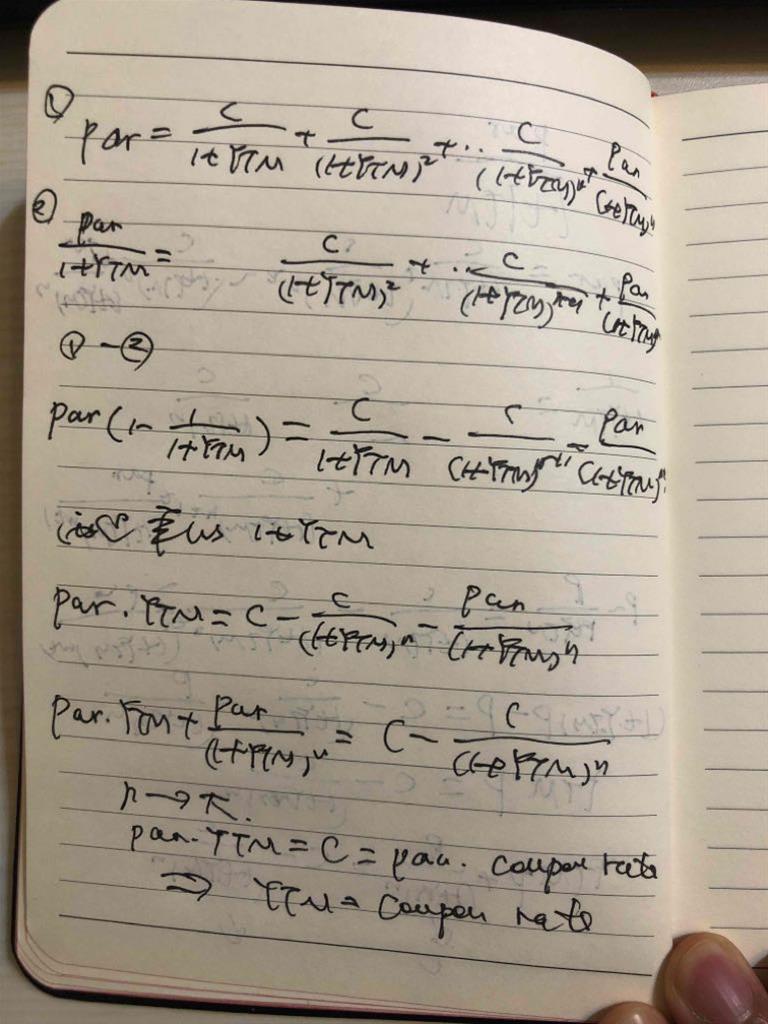 ① par = C/(1+YTM) + C/(1+YTM)² + .. C/(1+YTM)ⁿ + par/(1+YTM)ⁿ
② par/(1+YTM) = C/(1+YTM)² + .. C/(1+YTM)ⁿ⁺¹ + par/(1+YTM)
① - ②
par (1 - 1/(1+YTM)) = C/(1+YTM) - C/(1+YTM)ⁿ⁺¹ - par/(1+YTM)
1+YTM
par. YTM = C - C/(1+YTM)ⁿ - par/(1+YTM)ⁿ
par. YTM + par/(1+YTM)ⁿ = C - C/(1+YTM)ⁿ
n →
par. YTM = C = par. coupon rate
⇒ YTM = coupon rate